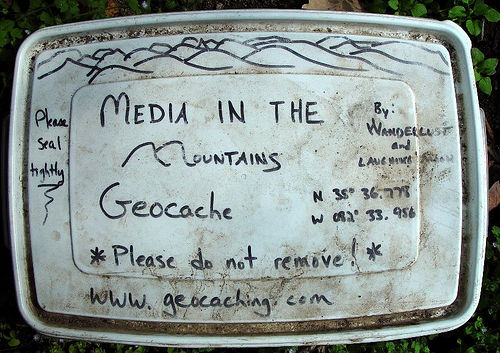 MEDIA IN THE
MOUNTAINS
Geocache
By:
WANDERLUST
and
LAUGHING
Please
seal
tightly
N 35° 36.773
W 082° 33.956
* Please do not remove! *
www.geocaching.com